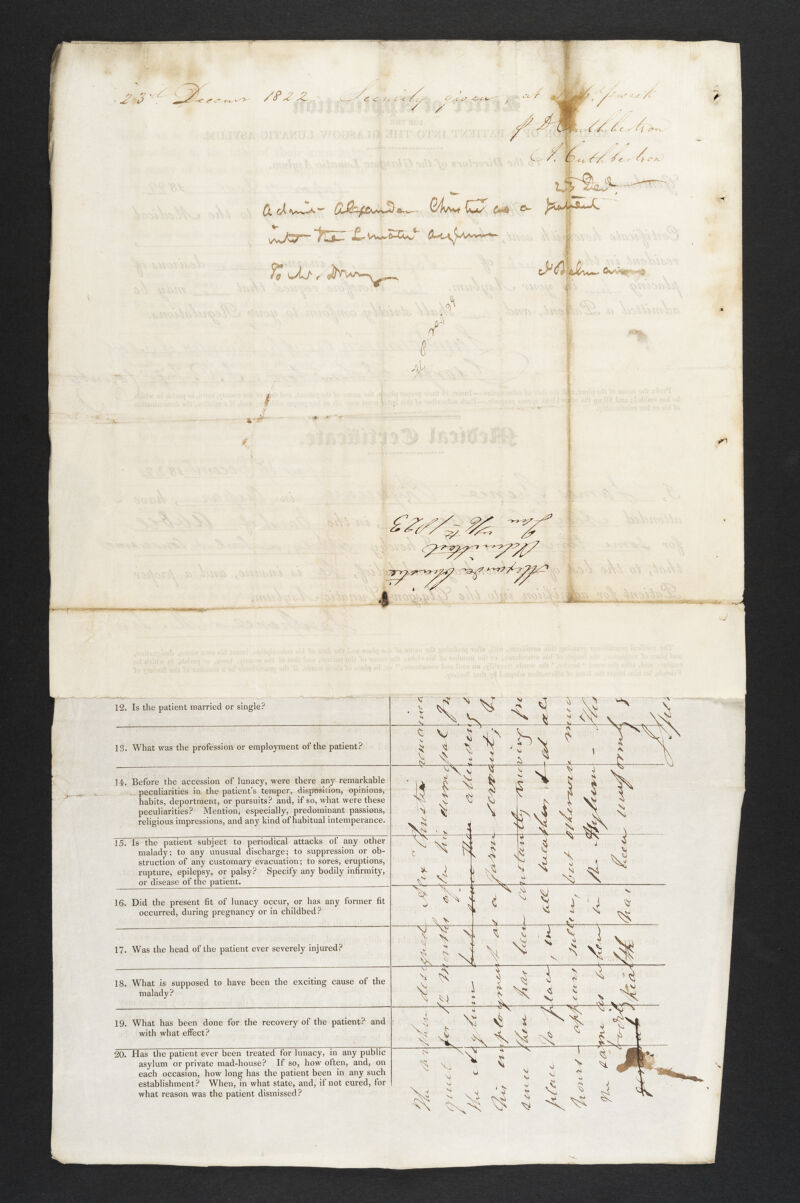 23d Decemr 1822 Security given at
J D Cuthbertson
A. Cuthbertson
23 Decr
Admit Alexander Christie as a patient
into the Lunatic Asylum
To Mr. Drury
Alexander Christie
Admitted
Jany 16th 1823
12. Is the patient married or single?
13. What was the profession or employment of the patient?
14. Before the accession of lunacy, were there any remarkable
peculiarities in the patient's temper, disposition, opinions,
habits, deportment, or pursuits? and, if so, what were these
peculiarities? Mention, especially, predominant passions,
religious impressions, and any kind of habitual intemperance.
15. Is the patient subject to periodical attacks of any other
malady; to any unusual discharge; to suppression or ob-
struction of any customary evacuation; to sores, eruptions,
rupture, epilepsy, or palsy? Specify any bodily infirmity,
or disease of the patient.
16. Did the present fit of lunacy occur, or has any former fit
occurred, during pregnancy or in childbed?
17. Was the head of the patient ever severely injured?
18. What is supposed to have been the exciting cause of the
malady?
19. What has been done for the recovery of the patient? and
with what effect?
20. Has the patient ever been treated for lunacy, in any public
asylum or private mad-house? If so, how often, and, on
each occasion, how long has the patient been in any such
establishment? When, in what state, and, if not cured, for
what reason was the patient dismissed?
The design'd Alexr Christie remained
quiet for 12 months after his dismissal fr
the Asylum but since then attending
his employment as a farm servant,
since then has been constantly moving fr
place to place, in all weather & at all
hours - appears sullen, but otherwise much
the same as when in the Asylum - His
bodily health has been uniformly
general